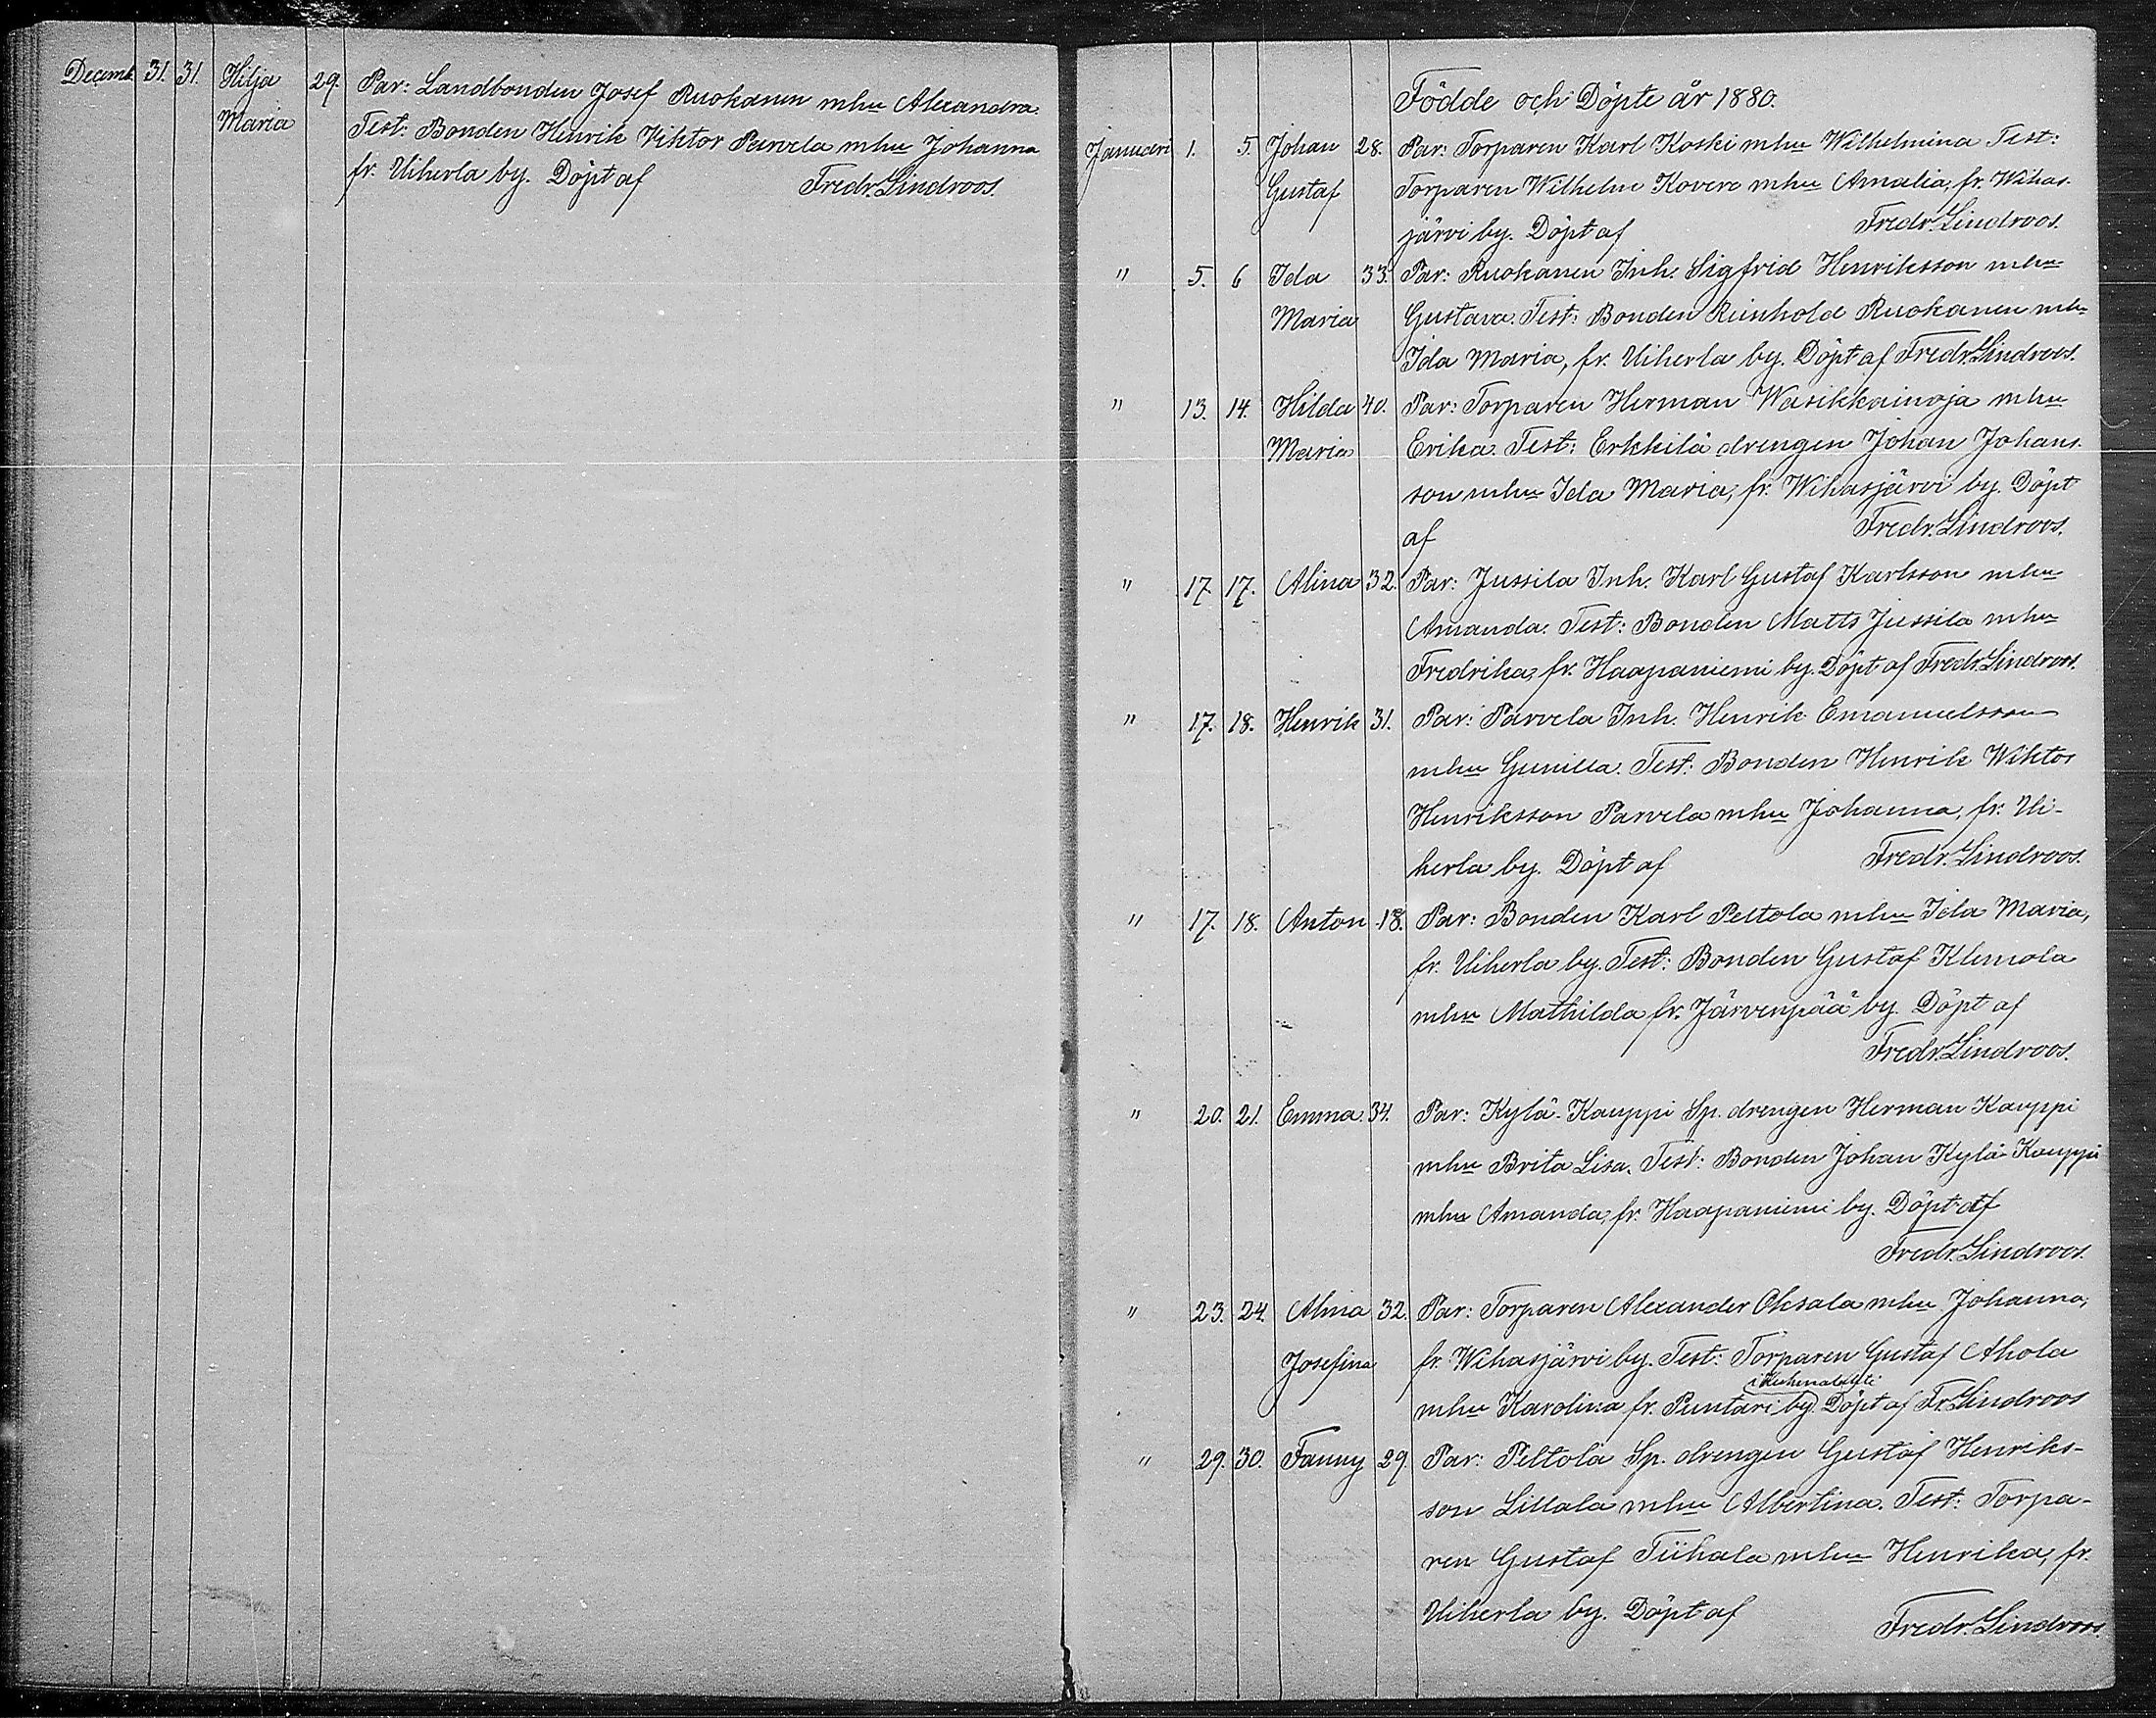 Decemb. 31. 31. Hilja 29. Par: Landbonden Josef Ruokanen mhu Alexandra.
Maria Test: Bonden Henrik Viktor Parvela mhu Johanna
fr. Uiherla by. Döpt af Fredr. Lindroos.
Födde och Döpte år 1880.
Januari 1. 5. Johan 28. Par: Torparen Karl Koski mhu Wilhelmina Test:
Gustaf Torparen Wilhelm Kovero mhu Amalia, fr. Wihas-
järvi by. Döpt af Fredr. Lindroos.
" 5. 6 Ida 33. Par: Ruokanen Inh. Sigfrid Henriksson mhu
Maria Gustava. Test: Bonden Reinhold Ruokanen mhu
Ida Maria, fr. Uiherla by. Döpt af Fredr. Lindroos.
" 13. 14. Hilda 40. Par: Torparen Herman Wasikkainoja mhu
Maria Erika. Test: Erkkilä drengen Johan Johans-
son mhu Ida Maria, fr. Wihasjärvi by. Döpt
af Fredr. Lindroos.
" 17. 17. Alina 32. Par: Jussila Inh. Karl Gustaf Karlsson mhu
Amanda. Test: Bonden Matts Jussila mhu
Fredrika, fr. Haapaniemi by. Döpt af Fredr. Lindroos.
" 17. 18. Henrik 31. Par: Parvela Inh. Henrik Emanuelsson
mhu Gunilla. Test: Bonden Henrik Wiktor
Henriksson Parvela mhu Johanna, fr. Ui-
herla by. Döpt af Fredr. Lindroos.
" 17. 18. Anton 18. Par: Bonden Karl Peltola mhu Ida Maria,
fr. Uiherla by. Test: Bonden Gustaf Klemola
mhu Mathilda fr. Järvenpää by. Döpt af
Fredr. Lindroos.
" 20. 21. Emma. 34. Par: Kylä-Kauppi Sp. drengen Herman Kauppi
mhu Brita Lisa. Test: Bonden Johan Kylä-Kauppi
mhu Amanda, fr. Haapaniemi by. Döpt af
Fredr. Lindroos.
" 23. 24. Alma 32. Par: Torparen Alexander Oksala mhu Johanna,
Josefina fr. Wihasjärvi by. Test: Torparen Gustaf Ahola
mhu Karolina fr. Puntari by. Döpt af Fr. Lindroos
" 29. 30. Fanny 29 Par: Peltola Sp. drengen Gustaf Henriks-
son Lillala mhu Albertina. Test: Torpa-
ren Gustaf Tiihala mhu Henrika, fr.
Uiherla by. Döpt af Fredr. Lindroos.